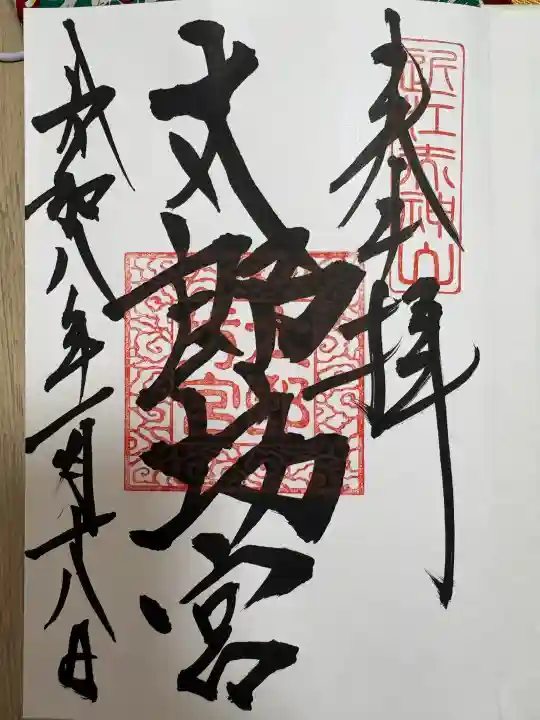 近江赤神山
奉拝
太郎坊宮
令和八年一月廿八日